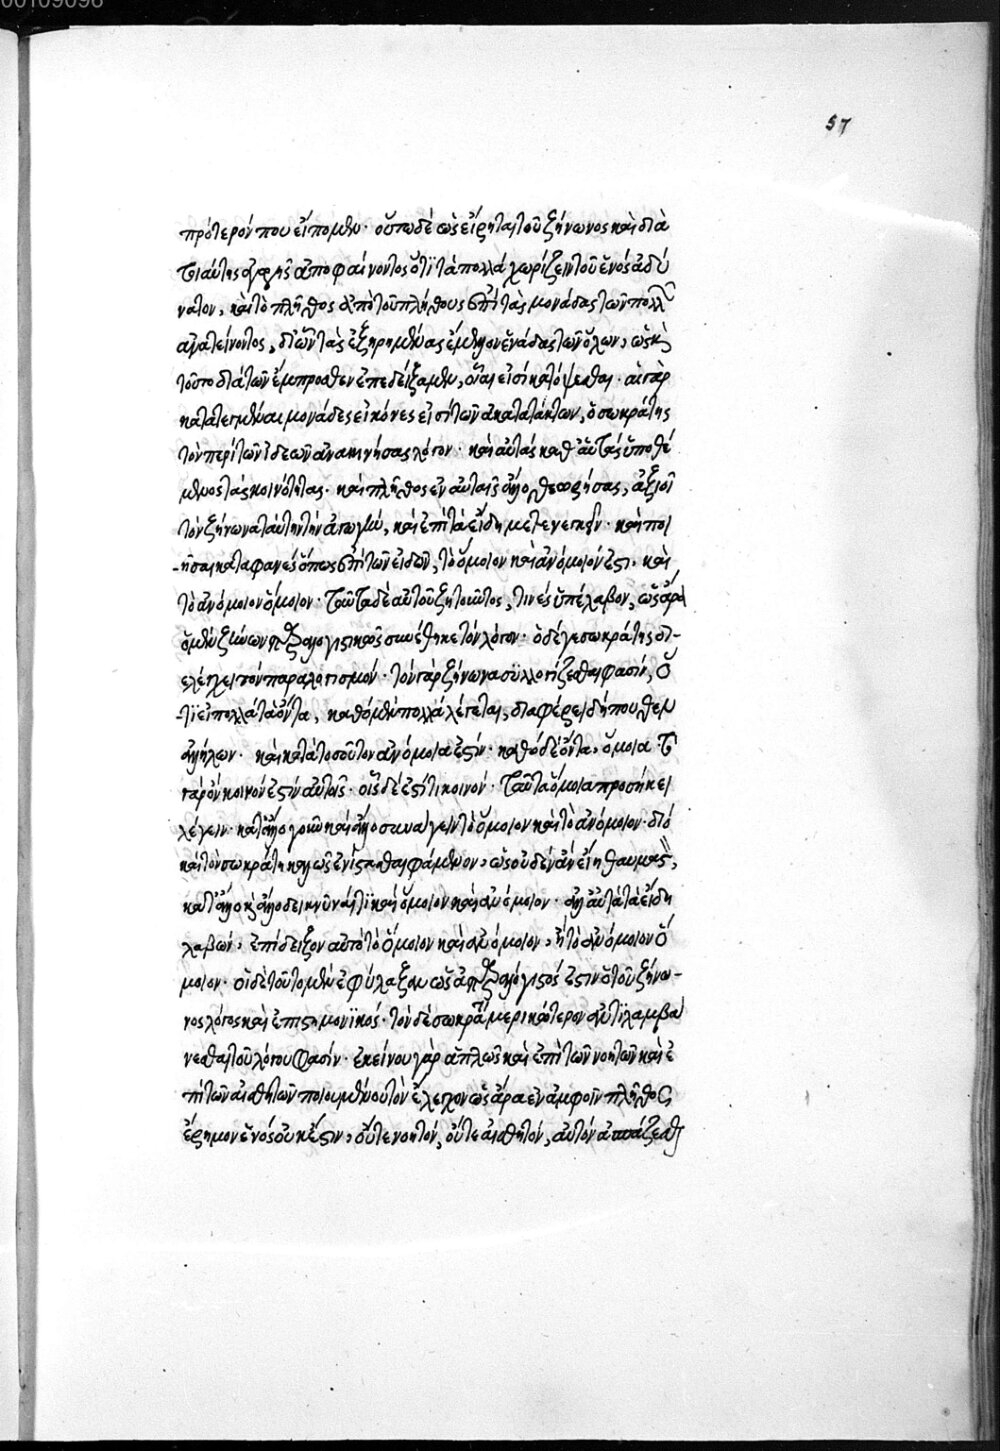 57
πρότερόν που εἴπομεν· οὕτω δὲ ὡς εἴρηται τοῦ ζήνωνος καὶ διὰ
τιαύτης ἀγωγῆς ἀποφαίνοντος ὅτι τὰ πολλὰ χωρίζειν τοῦ ἑνὸς ἀδύ
νατον, καὶ τὸ πλῆθος ἀπὸ τοῦ πλήθους ἐπὶ τὰς μονάδας τῶν πολλῶν
ἀνατείνοντος, δι' ὧν τὰς ἐξηρημένας ἐμήνυον ἑνάδας τῶν ὅλων, ὡς καὶ
τοῦτο διὰ τῶν ἔμπροσθεν ἐπεδείξαμεν, οἷαι εἰσὶ κατόψεσθαι· αἱ γὰρ
κατατεταγμέναι μονάδες εἰκόνες εἰσὶ τῶν ἀκατατάκτων, ὁ σωκράτης
τὸν περὶ τῶν ἰδεῶν ἀνακινήσας λόγον· καὶ αὐτὰς καθ' αὑτὰς ὑποθέ
μενος τὰς κοινότητας· καὶ πλῆθος ἐν αὐταῖς ἄλλο θεωρήσας, ἀξιοῖ
τὸν ζήνωνα ταύτην τὴν ἀπαγωγὴν, καὶ ἐπὶ τὰ εἴδη μετενεγκεῖν· καὶ ποι
-ῆσαι καταφανὲς ὅπως ἐπὶ τῶν εἰδῶν, τὸ ὅμοιον καὶ ἀνόμοιόν ἐστι· καὶ
τὸ ἀνόμοιον ὅμοιον· Ταῦτα δὲ αὐτοῦ ζητοῦντος, τινὲς ὑπέλαβον, ὡς ἄρα
ὁ μὲν ζήνων παραλογιστικῶς συνέθηκε τὸν λόγον· ὁ δέ γε σωκράτης δι-
ελέγχει τὸν παραλογισμόν· τὸν γὰρ ζήνωνα συλλογίζεσθαι φασὶν, ὅ
-τι εἰ πολλὰ τὰ ὄντα, καθὸ μὲν πολλὰ λέγεται, διαφέρει δήπουθεν
ἀλλήλων· καὶ κατὰ τοσοῦτον ἀνόμοιά ἐστιν· καθὸ δὲ ὄντα, ὅμοια· τὸ
γὰρ ὂν κοινόν ἐστιν αὐτοῖς· οἷς δέ ἐστι τι κοινόν· Ταῦτα ὅμοια προσήκει
λέγειν· κατ' ἄλλο γοῦν καὶ ἄλλο συναγεῖν τὸ ὅμοιον καὶ τὸ ἀνόμοιον· διὸ
καὶ τὸν σωκράτη καλῶς ἐνίστασθαι φάμενον, ὡς οὐδὲν ἂν εἴη θαυμαστὸν,
κατ' ἄλλο καὶ ἄλλο δεικνύναι τὶ καὶ ὅμοιον καὶ ἀνόμοιον· ἀλλ' αὐτὰ τὰ εἴδη
λαβὼν, ἐπίδειξον αὐτὸ τὸ ὅμοιον καὶ ἀνόμοιον, ἢ τὸ ἀνόμοιον ὅ
μοιον· οἱ δὲ τοῦτο μὲν ἐφύλαξαν ὡς ἀπαραλόγιστός ἐστιν ὁ τοῦ ζήνω-
νος λόγος καὶ ἐπιστημονικός· τὸν δὲ σωκράτη μερικώτερον ἀντιλαμβά
νεσθαι τοῦ λόγου φασίν· ἐκείνου γὰρ ἁπλῶς καὶ ἐπὶ τῶν νοητῶν καὶ ἐ
πὶ τῶν αἰσθητῶν ποιουμένου τὸν ἔλεγχον ὡς ἄρα ἐν ἀμφοῖν πλῆθος
ἔρημον ἑνὸς οὐκ ἔστιν, οὔτε νοητόν, οὔτε αἰσθητόν, αὐτὸν